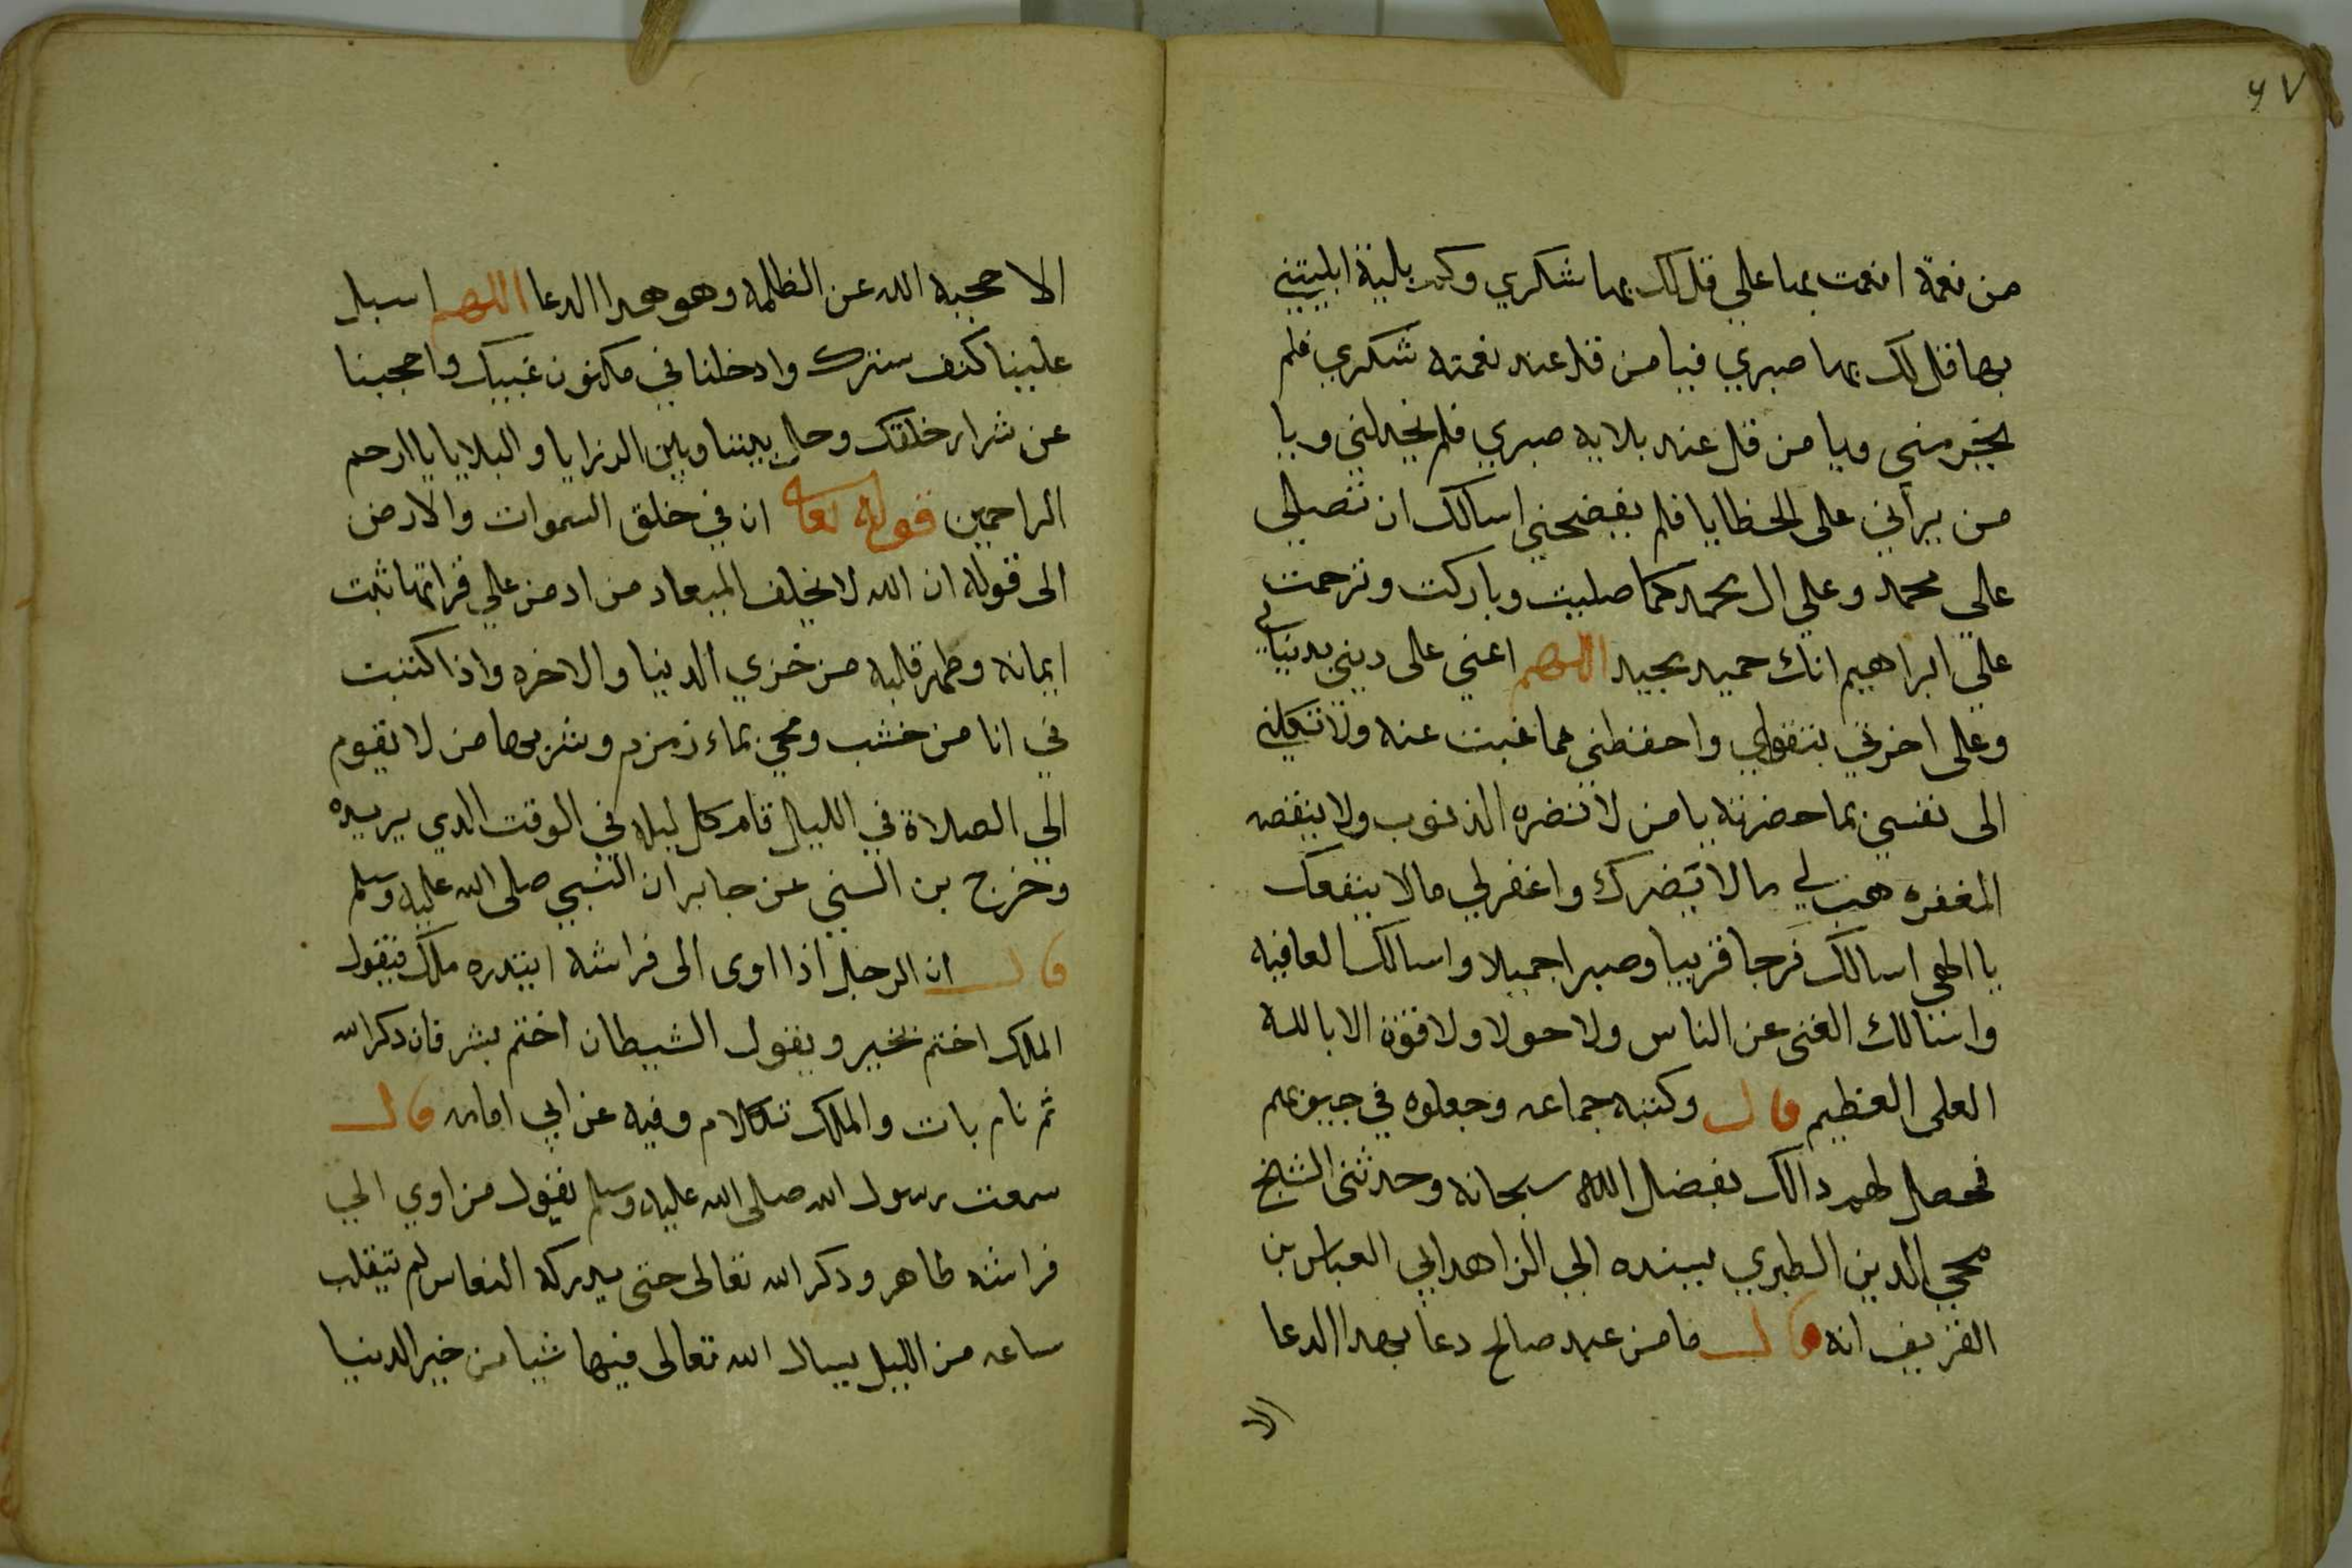 ٦٧
من نعمة انعمت بها علي قل لك بها شكري وكم بلية ابليتني
بها قل لك بها صبري فيا من قل عند نعمته شكري فلم
يحرمني ويا من قل عند بلايه صبري فلم يخذلني ويا
من يراني على الخطايا فلم يفضحني اسالك ان تصلي
علي محمد وعلي ال محمد كما صليت وباركت وترحمت
علي ابراهيم انك حميد مجيد اللهم اعني على ديني بدنياي
وعلى اخرتي بتقواي واحفظني مما غبت عنه ولا تكلني
الى نفسي بما حضرته يا من لا تضره الذنوب ولا ينقصه
المغفره هب لي مالا يضرك واغفر لي مالا ينفعك
يا الهي اسالك فرجا قريبا وصبرا جميلا واسالك العافيه
واسالك الغنى عن الناس ولا حولا ولا قوة الا بالله
العلى العظيم قال وكتبه جماعه وجعلوه في جيوبهم
فحصل لهم دالك بفضل الله سبحانه وحدثنى الشيخ
محي الدين الطبري بسنده الي الزاهد ابي العباس بن
الغريف انه قال ما من عبد صالح دعا بهدا الدعا
الا
الا حجبه الله عن الظلمه وهو هدا الدعا اللهم اسبل
علينا كنف سترك وادخلنا في مكنون غيبك واحجبنا
عن شرار خلقك وحال بيننا وبين الرزايا والبلايا يا ارحم
الراحمين قوله تعا ان في خلق السموات والارض
الى قوله ان الله لا يخلف الميعاد من ادمن علي قراتها ثبت
ايمانه وطهر قلبه من خزي الدنيا والاخره واذا كتبت
في انا من خشب ومحي بماء زمزم وشربها من لا يقوم
الي الصلاة في الليل قام كل ليله في الوقت الدي يريده
وخرج بن السني عن جابر ان النبي صلى الله عليه وسلم
قال ان الرجل اذا اوى الى فراشه ابتدره ملك فيقول
الملك اختم بخير ويقول الشيطان اختم بشر فان دكر الله
ثم نام بات والملك تكلام وفيه عن ابي امامه قال
سمعت رسول الله صلى الله عليه وسلم يقول من اوي الي
فراشه طاهر ودكر الله تعالى حتى يدركه النعاس لم تيقلب
ساعه من الليل يسال الله تعالى فيها شيا من خير الدنيا